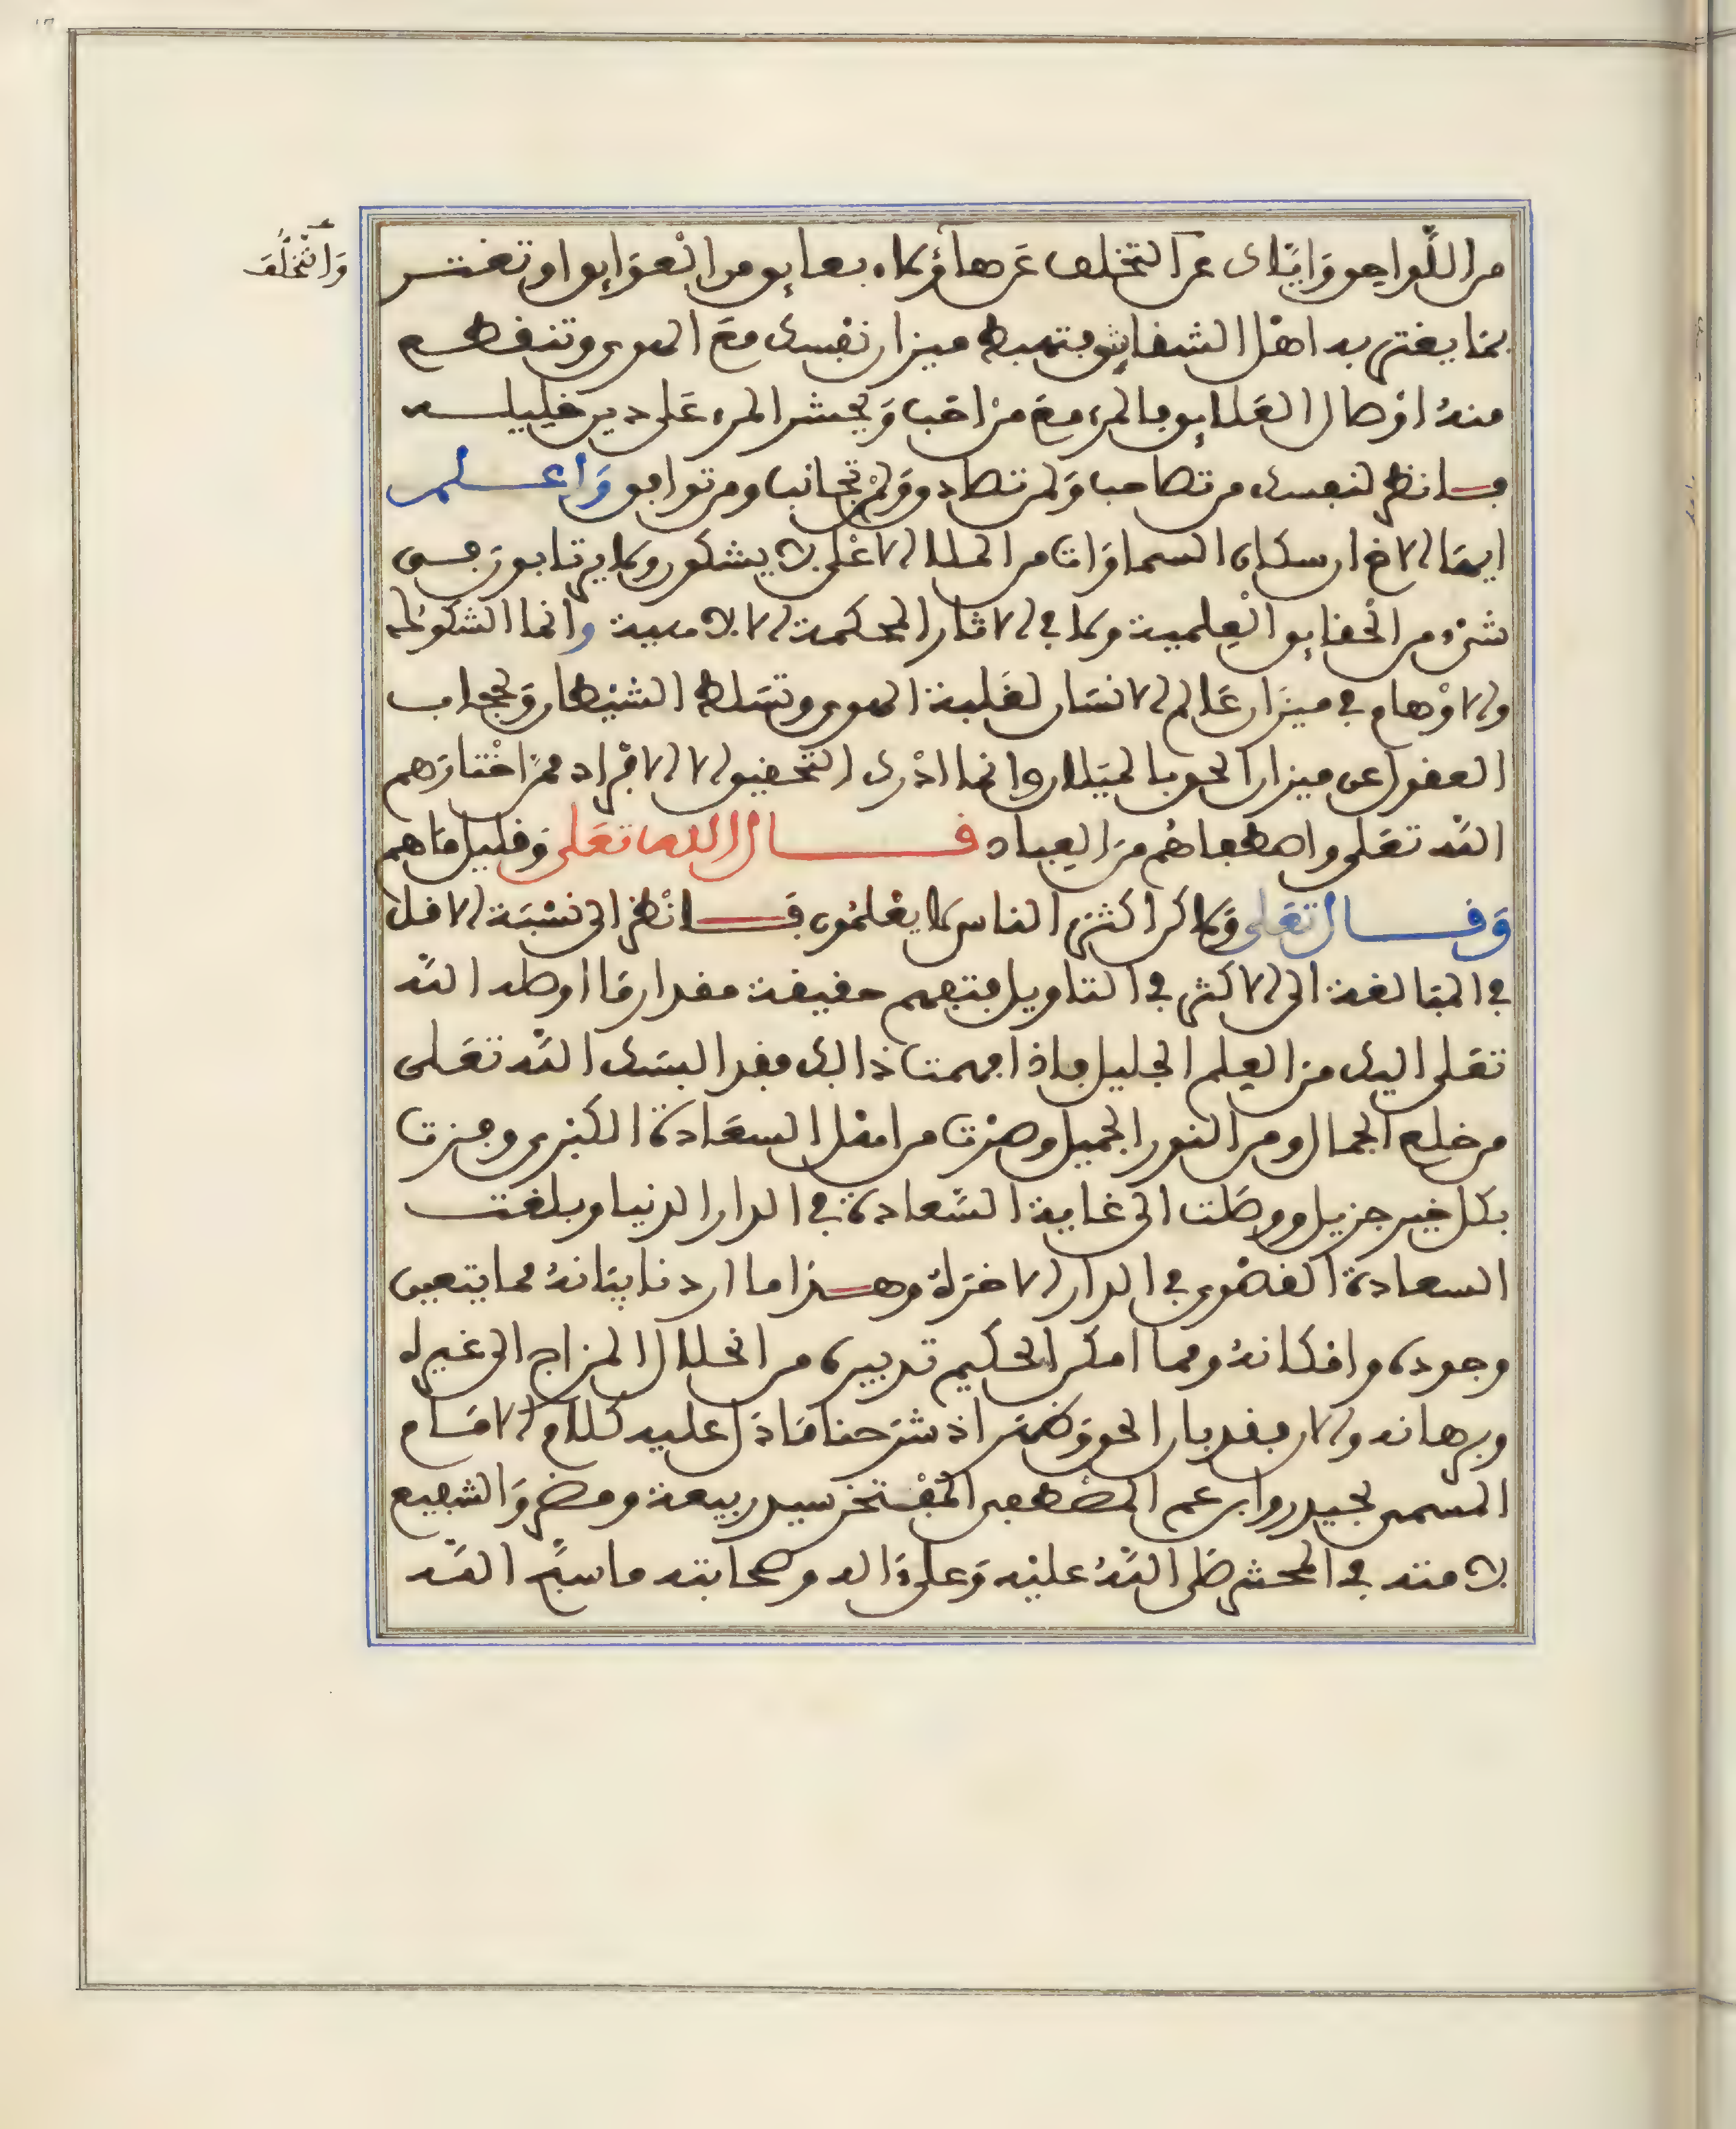 من اللواحق واياك عن التخلف عن هاؤلاء بعايق من العوايق او تغتر
والتخلف
بما يغتر به اهل الشقايق فتهبط ميزان نفسك مع الهوى وتنقطع
منه اوصال العلايق فالمرء مع من احب ويحشر المرء على دين خليله
فانظر لنفسك من تصاحب ولمن تصادق ولمن تجانب ومن توافق واعلم
ايها الاخ ان سكان السماوات من الملا الاعلى لا يشكون ولا يرتابون في
شيء من الحقايق العلمية ولا في الاثار المحكمة الالاهية وانما الشكوك
والاوهام في ميزان عالم الانسان لغلبة الهوى وتسلط الشيطان ولحجاب
العقول عن ميزان الحق بالميلان وانما ادرك التحقيق الا الافراد ممن اختارهم
الله تعلى واصطفاهم من العباد قال الله تعلى وقليل ما هم
وقال تعلى ولاكن اكثر الناس لا يعلمون فانظر الى نسبة الاقل
في المبالغة الى الاكثر في التاويل فتفهم حقيقة مقدار ما اوصله الله
تعلى اليك من العلم الجليل فاذا فهمت ذالك فقد البسك الله تعلى
من خلع الجمال ومن النور الجميل وصرت من اهل السعادة الكبرى وفزت
بكل خير جزيل ووصلت الى غاية السعادة في الدار الدنيا وبلغت
السعادة القصوى في الدار الاخرة وهذا ما اردنا بيانه مما يتعين
وجوده وامكانه ومما امكن الحكيم تدبيره من انحلال المزاج الى غيره
وبرهانه والان فقد بان الحق وظهر اذ شرحنا ما دل عليه كلام الامام
المسمى بحيدر وابن عم المصطفى المفتخر سيد ربيعة ومضر والشفيع
لامته في المحشر صلى الله عليه وعلى ءاله وصحابته ما سبح الله